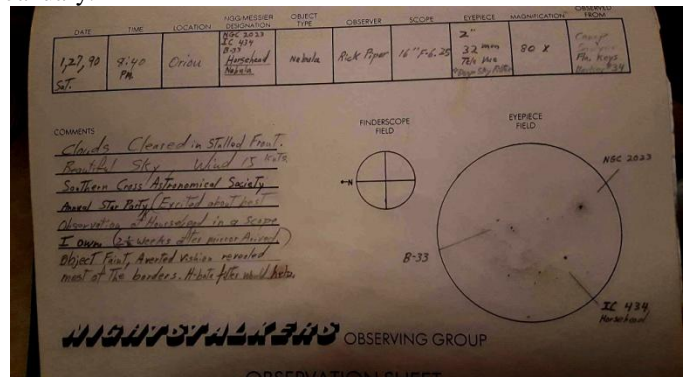 DATE TIME LOCATION NGC-MESSIER DESIGNATION OBJECT TYPE OBSERVER SCOPE EYEPIECE MAGNIFICATION OBSERVED FROM
1,27,90 Sat. 9:40 PM. Orion NGC 2023 IC 434 B-33 Horsehead Nebula Nebula Rick Piper 16" F-6.25 2" 32 mm Sky Filter 80 X Camp Fla. Keys #34
COMMENTS
Clouds Cleared in Stalled Front.
Beautiful Sky Wind 15 Knts.
Southern Cross Astronomical Society
Annual Star Party (Excited about best
Observation of Horsehead in a Scope
I own (2½ weeks after mirror Arrived)
Object Faint, Averted Vishion revealed
most of the borders. H-bata filter would help.
FINDERSCOPE
FIELD
N
EYEPIECE
FIELD
NGC 2023
B-33
IC 434,
Horsehead
NIGHTSTALKERS OBSERVING GROUP
OBSERVATION SHEET